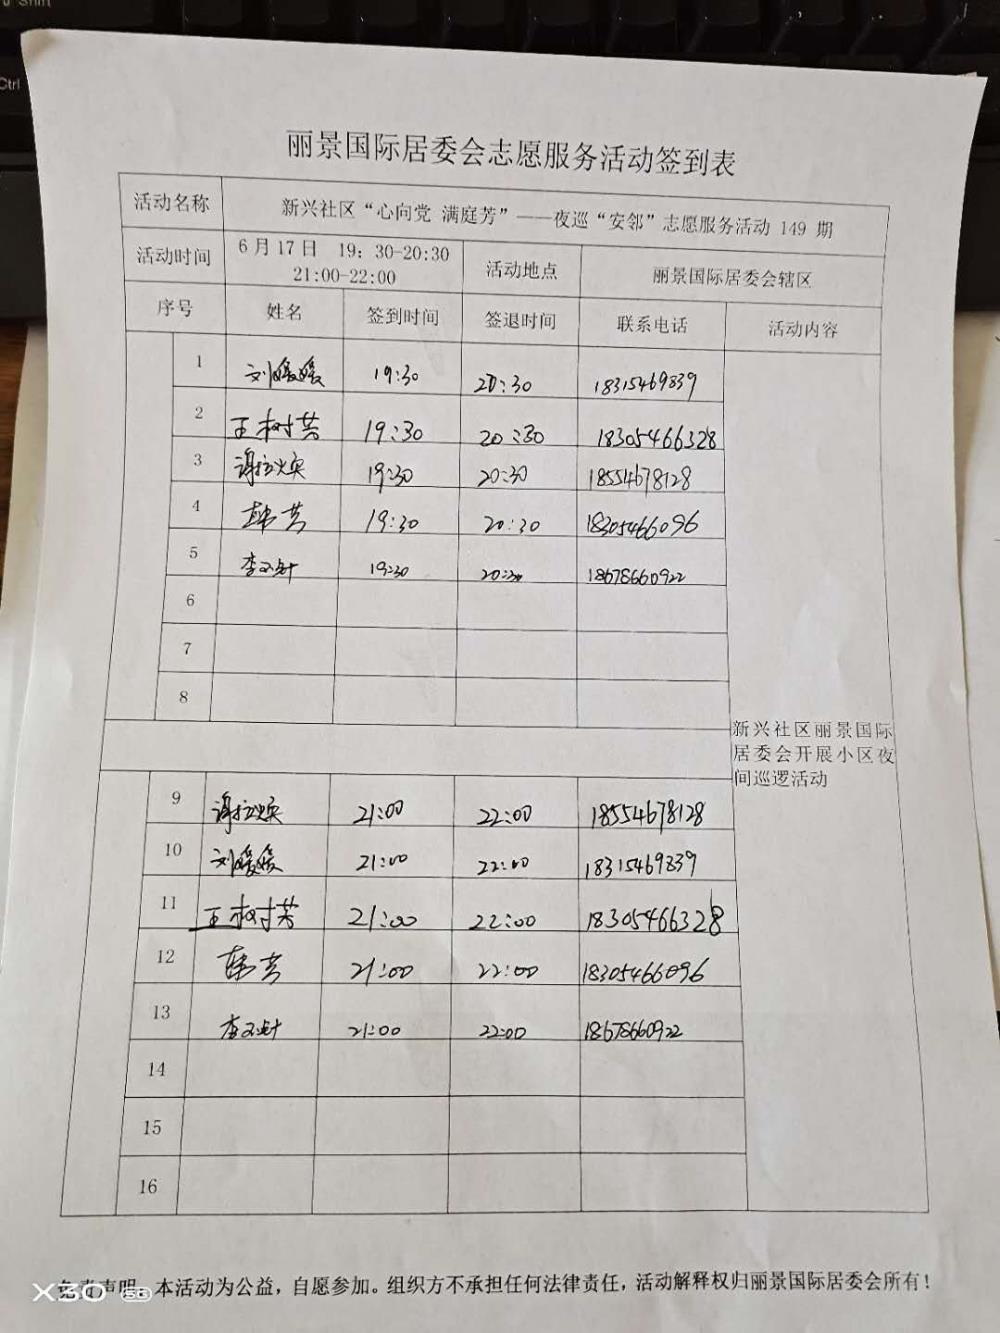 Shift
Ctrl
丽景国际居委会志愿服务活动签到表
活动名称 新兴社区“心向党 满庭芳”——夜巡“安邻”志愿服务活动 149 期
活动时间 6 月 17 日 19：30-20:30 21:00-22:00 活动地点 丽景国际居委会辖区
序号 姓名 签到时间 签退时间 联系电话 活动内容
1 刘媛媛 19:30 20:30 18315469839
2 王树芸 19:30 20:30 18305466328
3 19:30 20:30 18554678128
4 韩芸 19:30 20:30 18305466096
5 19:30 20:30 18678660922
6
7
8
新兴社区丽景国际
居委会开展小区夜
间巡逻活动
9 21:00 22:00 18554678128
10 刘媛媛 21:00 22:00 18315469839
11 王树芸 21:00 22:00 18305466328
12 韩芸 21:00 22:00 18305466096
13 21:00 22:00 18678660922
14
15
16
免责声明：本活动为公益，自愿参加。组织方不承担任何法律责任，活动解释权归丽景国际居委会所有！
X30